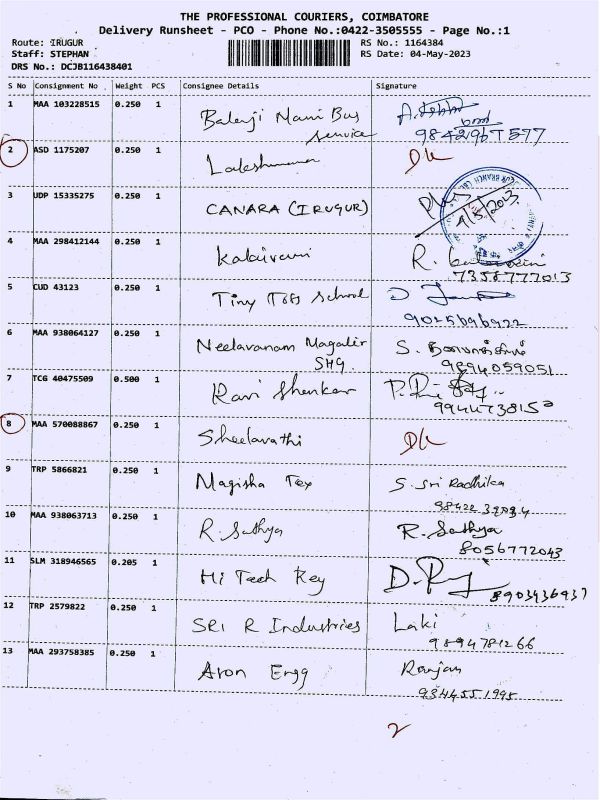 THE PROFESSIONAL COURIERS, COIMBATORE
Delivery Runsheet - PCO - Phone No.:0422-3505555 - Page No.:1
Route: IRUGUR RS No.: 1164384
Staff: STEPHAN RS Date: 04-May-2023
DRS No.: DCJB116438401
S No Consignment No Weight PCS Consignee Details Signature
1 MAA 103228515 0.250 1 Balaji Mani Bus
Service
2 ASD 1175207 0.250 1 DL
3 UDP 15335275 0.250 1 CANARA (IRUGUR)
4/5/2023
4 MAA 298412144 0.250 1 Kalaivani R.
7356777013
5 CUD 43123 0.250 1 Tiny Tots School
9025696922
6 MAA 938064127 0.250 1 Neelavanam Magalir S.
SHG. 9894059051
7 TCG 40475509 0.500 1 Ravi Shankar
8 MAA 570088867 0.250 1 Sheelavathi DL
9 TRP 5866821 0.250 1 Magisha Tex S. Sri Radhika
10 MAA 938063713 0.250 1 R. Sathya R. Sathya
8056772043
11 SLM 318946565 0.205 1 Hi Tech Key
8903436937
12 TRP 2579822 0.250 1 SRI R Industries Laki
9894781266
13 MAA 293758385 0.250 1 Aron Engg Ranjan
9344551995
2